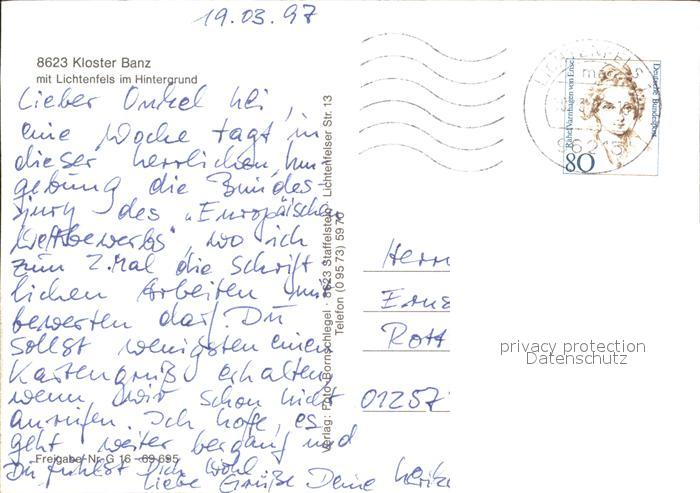 19.03.97
8623 Kloster Banz
mit Lichtenfels im Hintergrund
Lieber Onkel
eine Woche tagt in
dieser herrlichen Um-
gebung die Bundes-
jury des „Europäischen
Wettbewerbs", wo ich
zum 2. Mal die schrift-
lichen Arbeiten mit
bewerten darf. Du
sollst wenigsten einen
Kartengruß erhalten
wenn wir schon nicht
anrufen. Ich hoffe, es
geht weiter bergauf und
Du fühlst Dich wohl.
Liebe Grüße Deine
Freigabe-Nr. G 16 - 69 695
Verlag: Foto-Bornschlegel · 8623 Staffelstein · Lichtenfelser Str. 13
Telefon (0 95 73) 59 70
Deutsche Bundespost
Rahel Varnhagen von Ense
80
Herrn
Rott
01257
privacy protection
Datenschutz